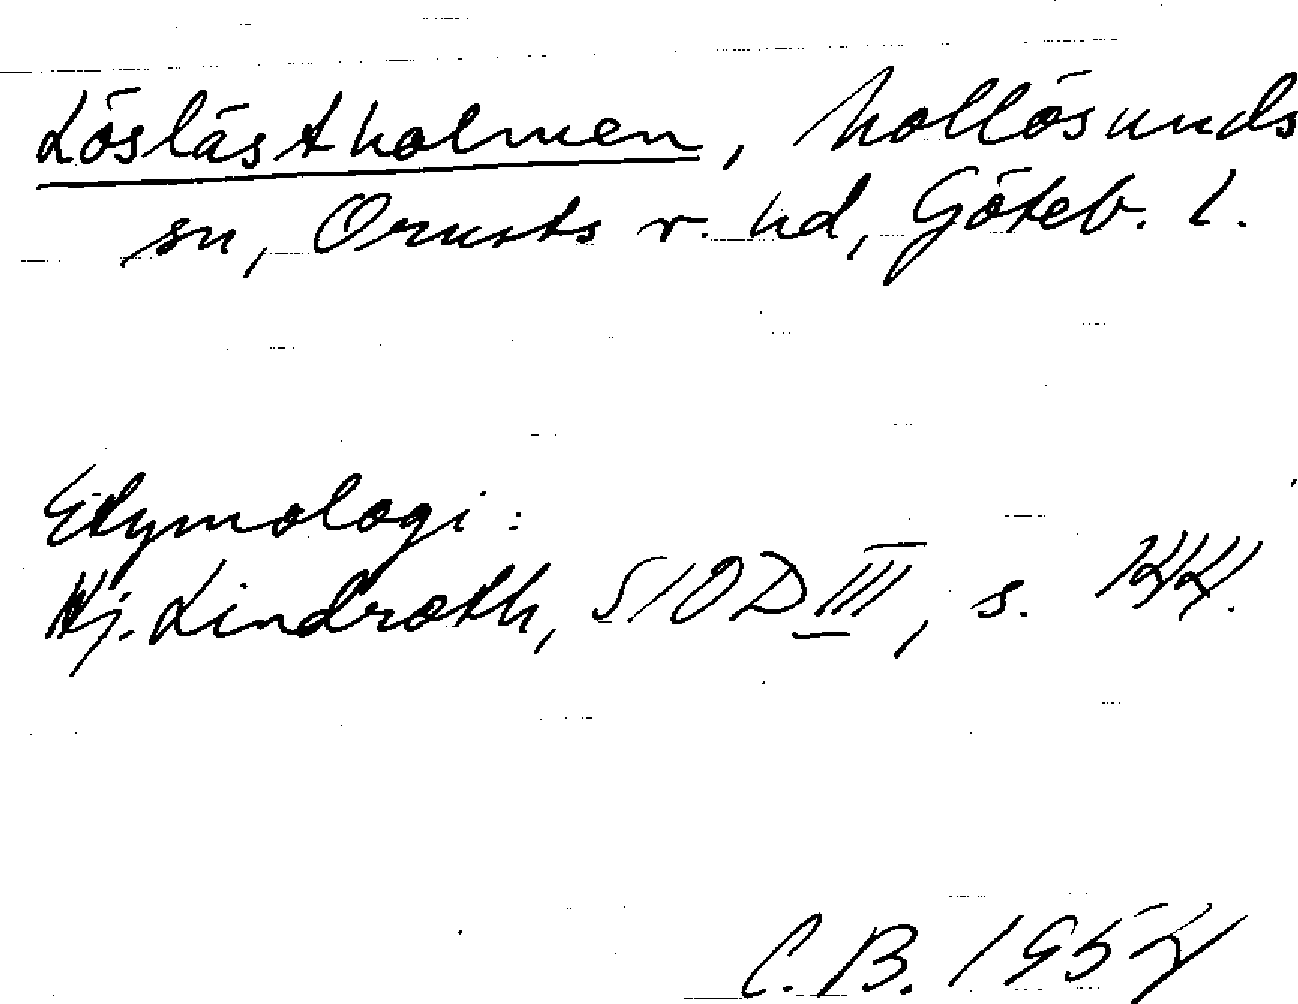 Löslästholmen, Mollösunds
sn, Orusts v. hd, Göteb. l.
Etymologi:
Hj. Lindroth, SIOD III, s. 144.
C.B. 1954